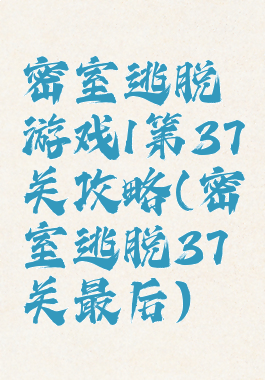 密室逃脱
游戏1第37
关攻略(密
室逃脱37
关最后)